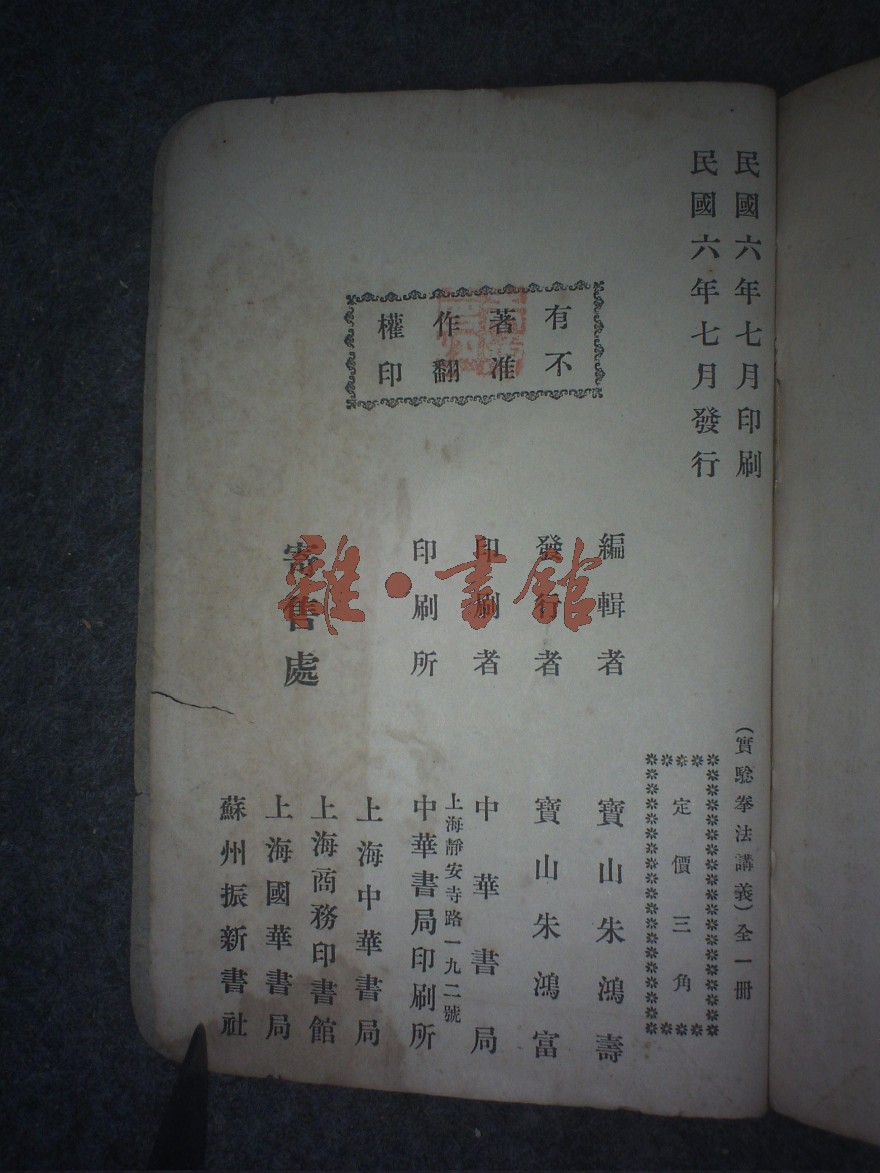 民國六年七月印刷
民國六年七月發行
有著作權
不准翻印
(實騐拳法講義)全一冊
定價三角
編輯者 寶山朱鴻壽
發行者 寶山朱鴻富
印刷者 中華書局
上海靜安寺路一九二號
印刷所 中華書局印刷所
寄售處
上海中華書局
上海商務印書館
上海國華書局
蘇州振新書社
雜·書館